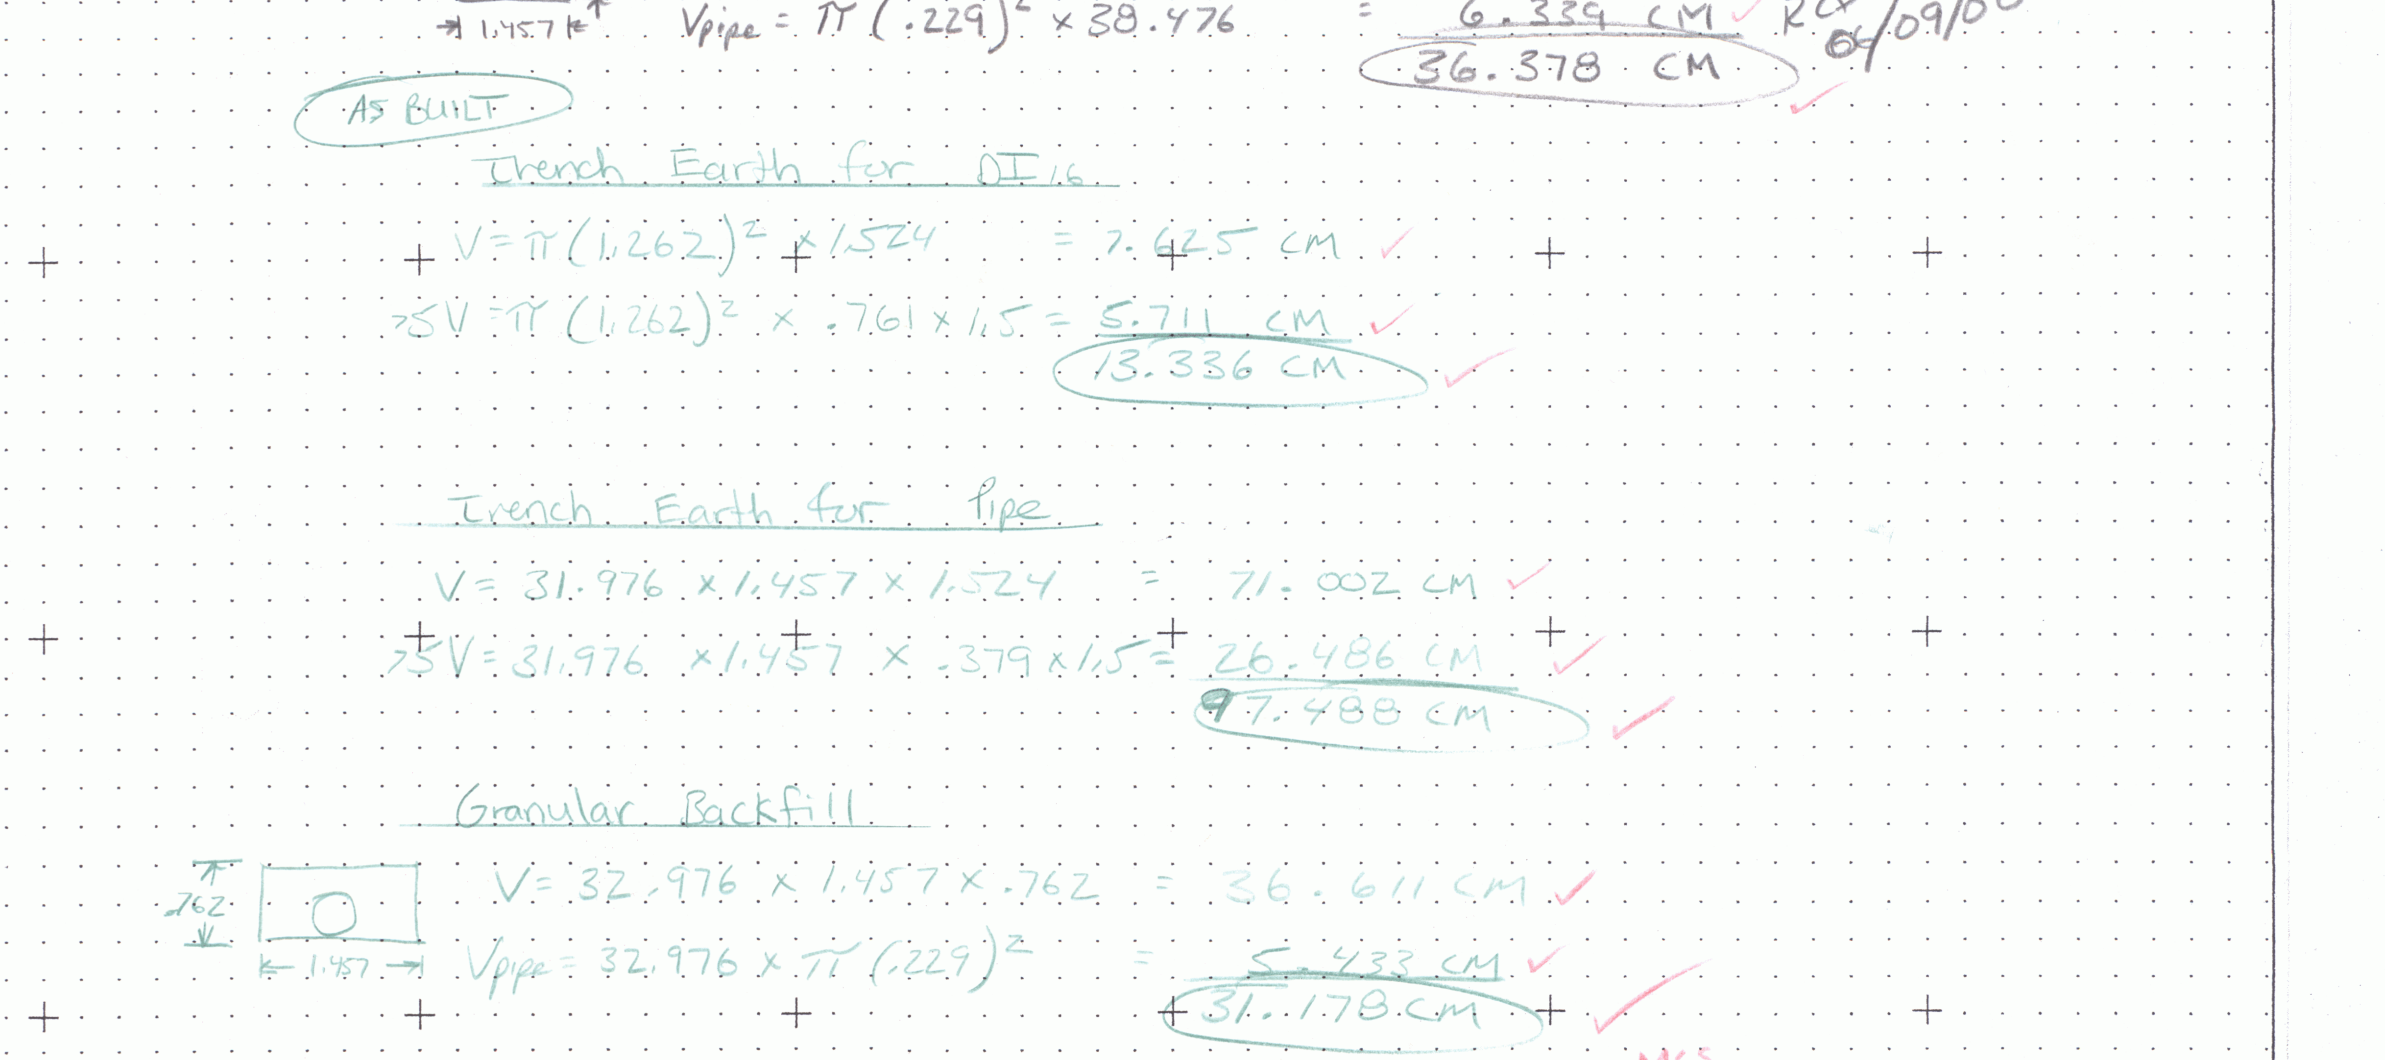 1.457 Vpipe = π (.229)² × 38.476 = 6.339 CM
36.378 CM
AS BUILT
Trench Earth for DI 16
V = π (1.262)² × 1.524 = 7.625 CM
>5 V = π (1.262)² × .761 × 1.5 = 5.711 CM
13.336 CM
Trench Earth for Pipe
V = 31.976 × 1.457 × 1.524 = 71.002 CM
>5 V = 31.976 × 1.457 × .379 × 1.5 = 26.486 CM
97.488 CM
Granular Backfill
V = 32.976 × 1.457 × .762 = 36.611 CM
.762
Vpipe = 32.976 × π (.229)² = 5.433 CM
1.457
31.178 CM